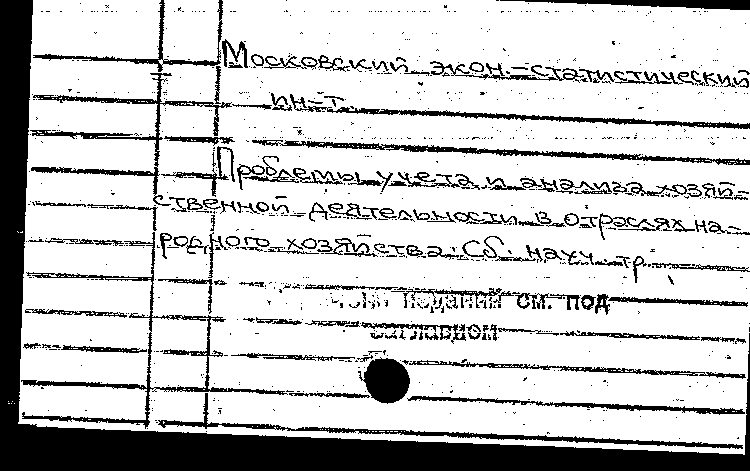 Московский экон.-статистический
ин-т.
Проблемы учета и анализа хозяй-
ственной деятельности в отраслях на-
родного хозяйства. Сб. науч. тр.
изданий см. под
заглавием